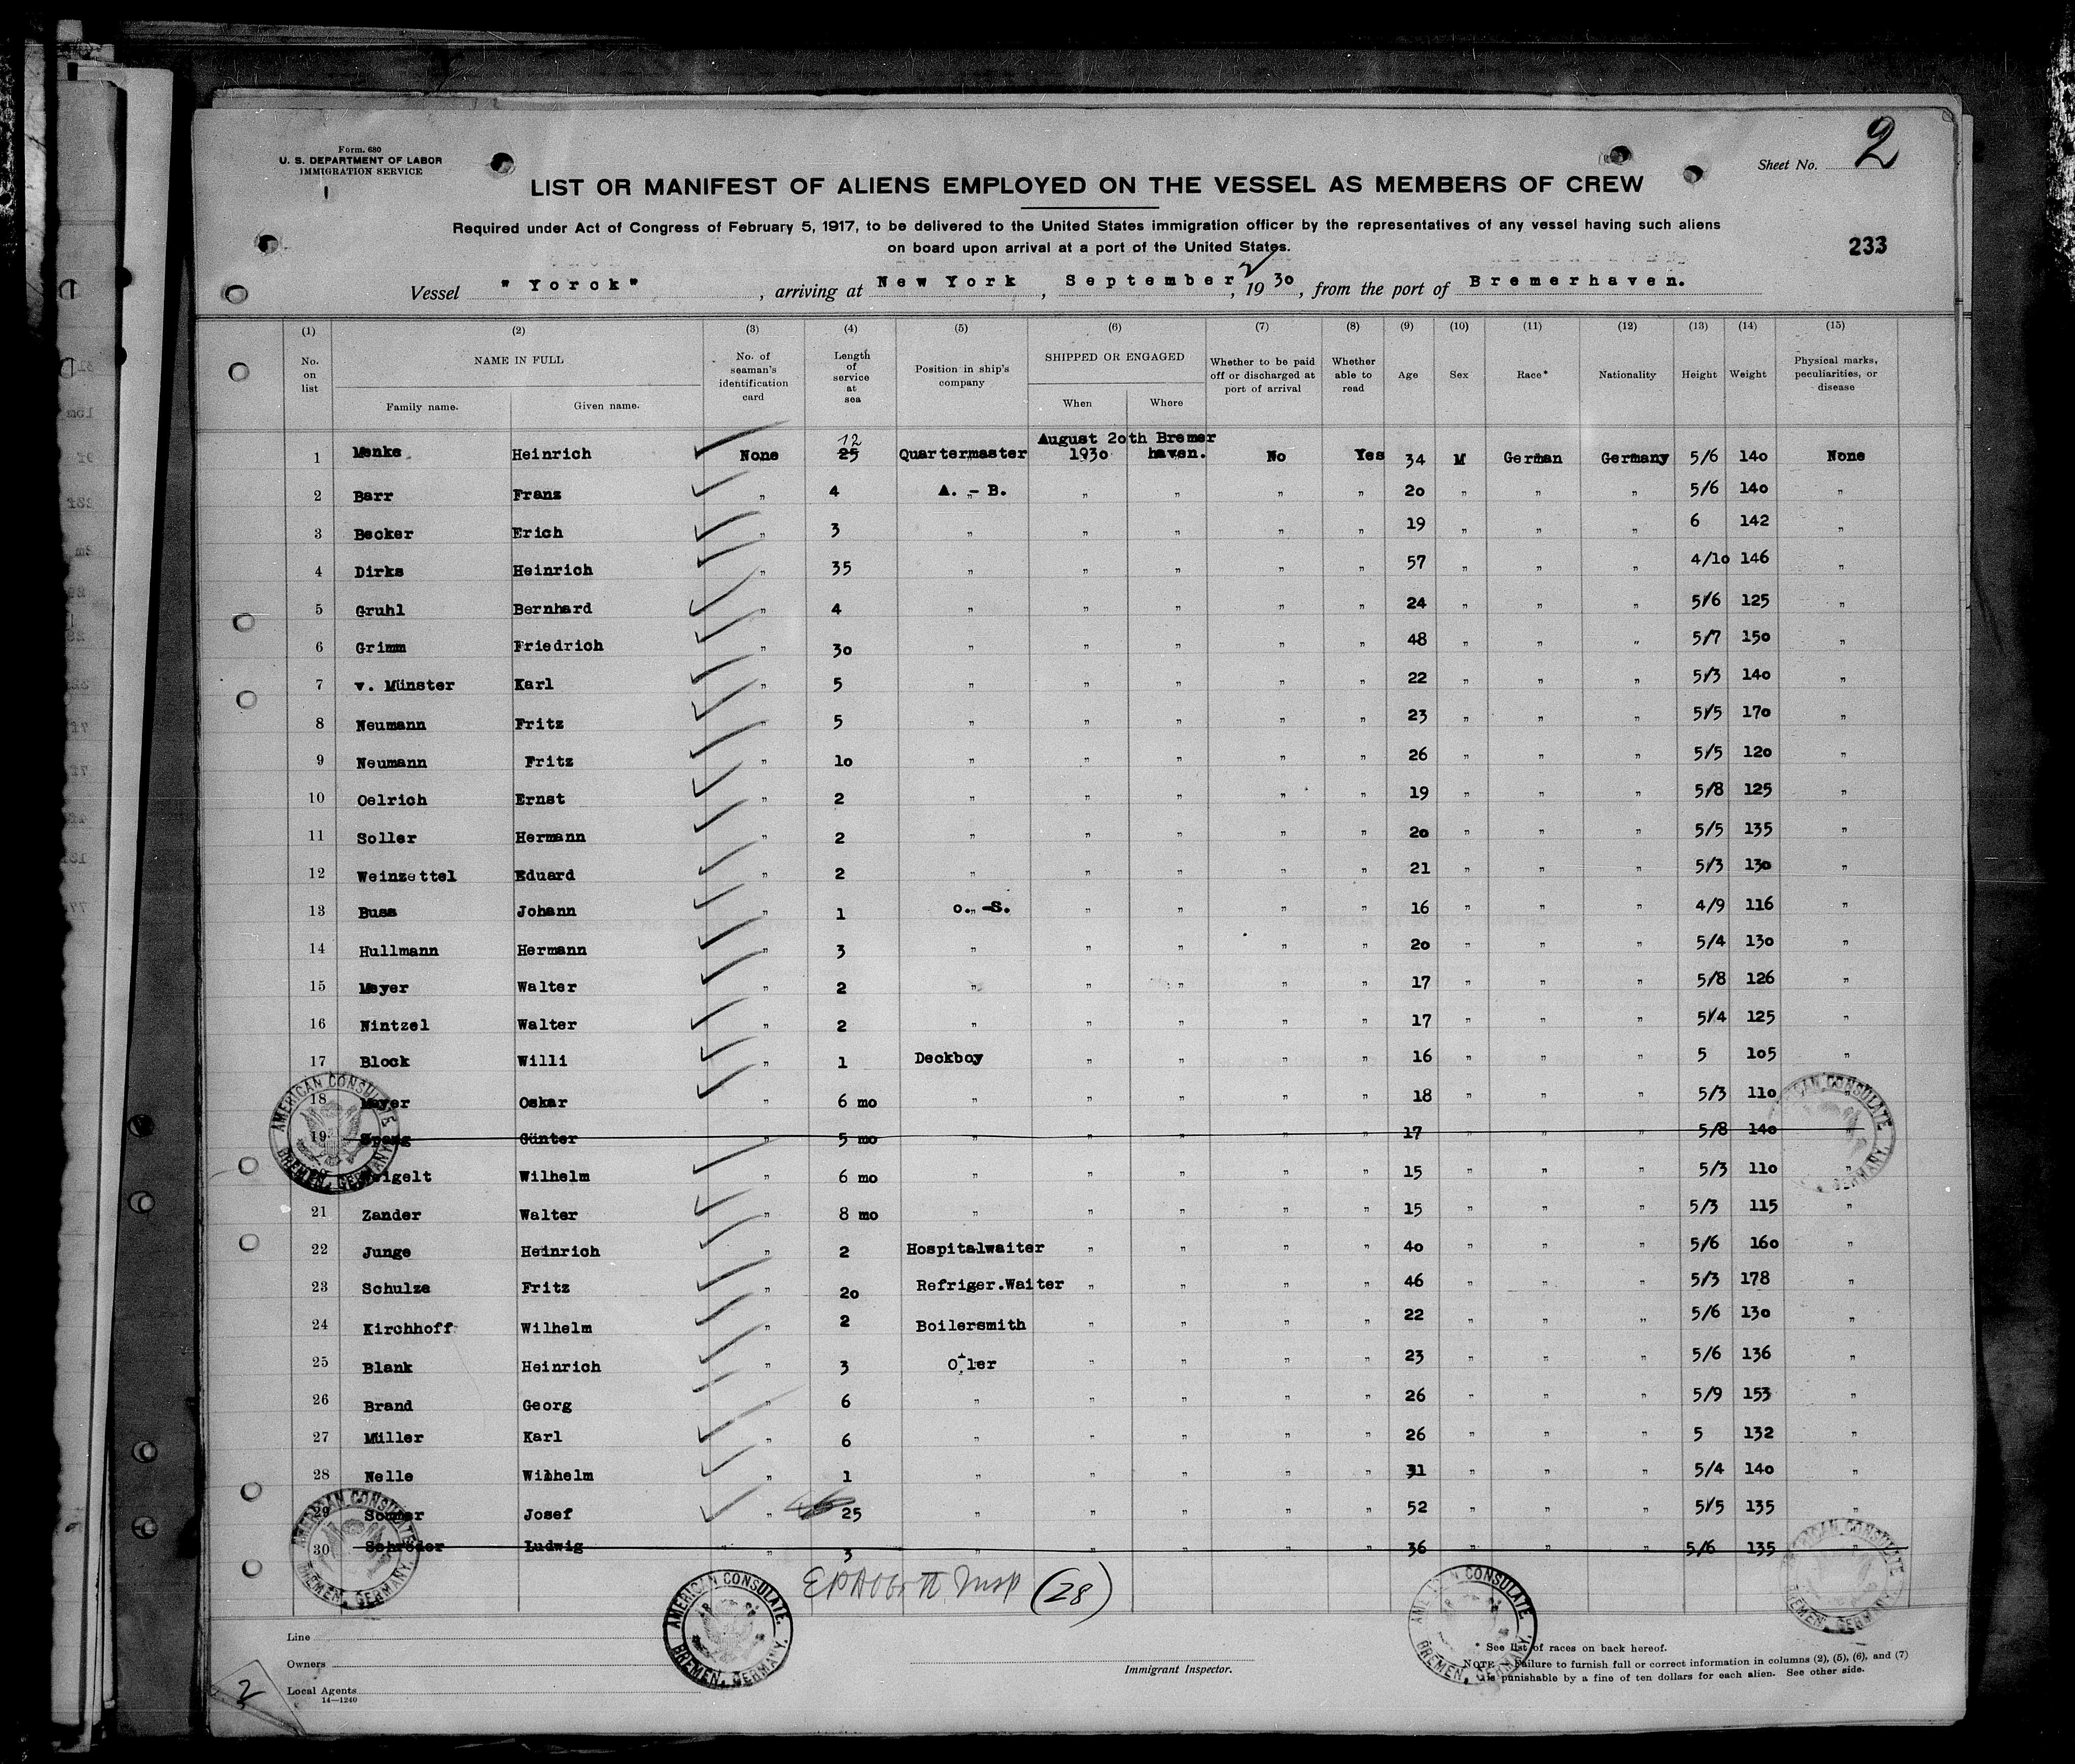 Form. 680
U. S. DEPARTMENT OF LABOR
IMMIGRATION SERVICE
Sheet No. 2
LIST OR MANIFEST OF ALIENS EMPLOYED ON THE VESSEL AS MEMBERS OF CREW
Required under Act of Congress of February 5, 1917, to be delivered to the United States immigration officer by the representatives of any vessel having such aliens
on board upon arrival at a port of the United States.
233
Vessel "Yorck", arriving at New York, September 2, 1930, from the port of Bremerhaven.
(1) (2) (3) (4) (5) (6) (7) (8) (9) (10) (11) (12) (13) (14) (15)
No. on list NAME IN FULL Family name. Given name. No. of seaman's identification card Length of service at sea Position in ship's company SHIPPED OR ENGAGED When Where Whether to be paid off or discharged at port of arrival Whether able to read Age Sex Race* Nationality Height Weight Physical marks, peculiarities, or disease
1 Menke Heinrich None 25 12 Quartermaster August 20th 1930 Bremerhaven. No Yes 34 M German Germany 5/6 140 None
2 Barr Franz " 4 A. - B. " " " " 20 " " " 5/6 140 "
3 Becker Erich " 3 " " " " " 19 " " " 6 142 "
4 Dirks Heinrich " 35 " " " " " 57 " " " 4/10 146 "
5 Gruhl Bernhard " 4 " " " " " 24 " " " 5/6 125 "
6 Grimm Friedrich " 30 " " " " " 48 " " " 5/7 150 "
7 v. Münster Karl " 5 " " " " " 22 " " " 5/3 140 "
8 Neumann Fritz " 5 " " " " " 23 " " " 5/5 170 "
9 Neumann Fritz " 10 " " " " " 26 " " " 5/5 120 "
10 Oelrich Ernst " 2 " " " " " 19 " " " 5/8 125 "
11 Soller Hermann " 2 " " " " " 20 " " " 5/5 135 "
12 Weinzettel Eduard " 2 " " " " " 21 " " " 5/3 130 "
13 Buss Johann " 1 O. -S. " " " " 16 " " " 4/9 116 "
14 Hullmann Hermann " 3 " " " " " 20 " " " 5/4 130 "
15 Meyer Walter " 2 " " " " " 17 " " " 5/8 126 "
16 Nintzel Walter " 2 " " " " " 17 " " " 5/4 125 "
17 Block Willi " 1 Deckboy " " " " 16 " " " 5 105 "
18 Meyer Oskar " 6 mo " " " " " 18 " " " 5/3 110 "
19 Günter " 5 mo " " " " " 17 " " " 5/8 140
Weigelt Wilhelm " 6 mo " " " " " 15 " " " 5/3 110 "
21 Zander Walter " 8 mo " " " " " 15 " " " 5/3 115 "
22 Junge Heinrich " 2 Hospitalwaiter " " " " 40 " " " 5/6 160 "
23 Schulze Fritz " 20 Refriger.Waiter " " " " 46 " " " 5/3 178 "
24 Kirchhoff Wilhelm " 2 Boilersmith " " " " 22 " " " 5/6 130 "
25 Blank Heinrich " 3 Oiler " " " " 23 " " " 5/6 136 "
26 Brand Georg " 6 " " " " " 26 " " " 5/9 153 "
27 Müller Karl " 6 " " " " " 26 " " " 5 132 "
28 Nelle Wilhelm " 1 " " " " " 31 " " " 5/4 140 "
29 Sommer Josef " 25 " " " " " 52 " " " 5/5 135 "
30 Schröder Ludwig " 3 " " " " " 36 " " " 5/6 135 "
Insp (28)
AMERICAN CONSULATE, BREMEN, GERMANY.
AMERICAN CONSULATE, BREMEN, GERMANY.
AMERICAN CONSULATE, BREMEN, GERMANY.
AMERICAN CONSULATE, BREMEN, GERMANY.
AMERICAN CONSULATE, BREMEN, GERMANY.
AMERICAN CONSULATE, BREMEN, GERMANY.
Line
Owners
Local Agents
14—1240
Immigrant Inspector.
* See list of races on back hereof.
NOTE.—Failure to furnish full or correct information in columns (2), (5), (6), and (7)
is punishable by a fine of ten dollars for each alien. See other side.
2